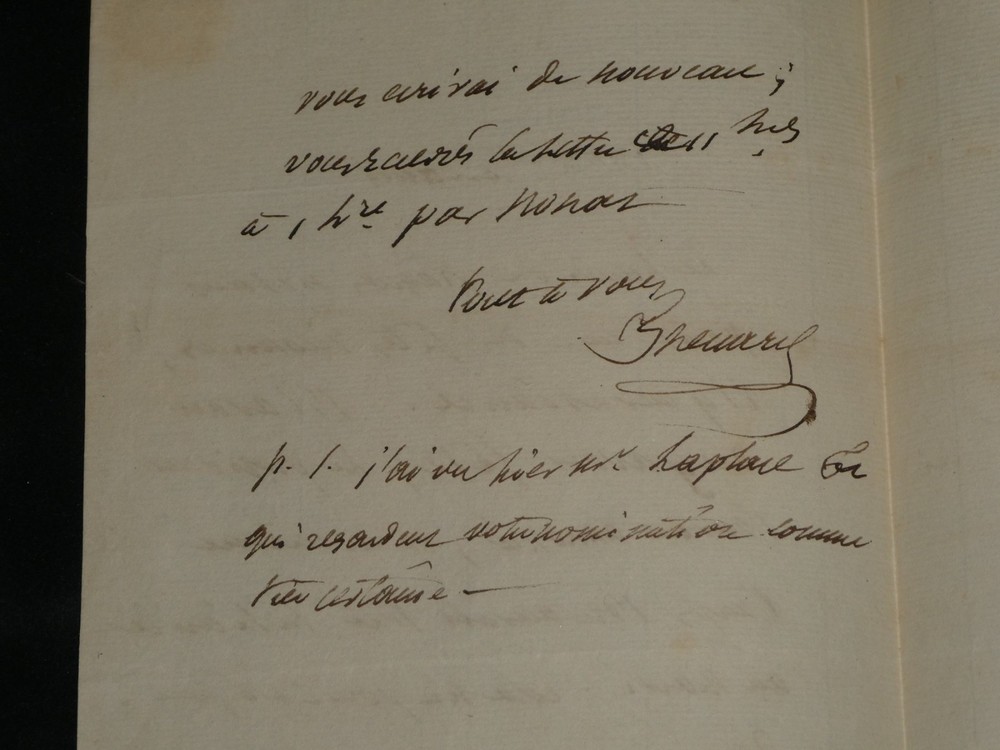 vous écrirai de nouveau ;
vous recevrés la lettre de 11 h.es
à 1 h.re par
Tout à vous
Thenard
p. s. j'ai vu hier mr. Laplace &c
qui regardent votre nomination comme
très certaine —